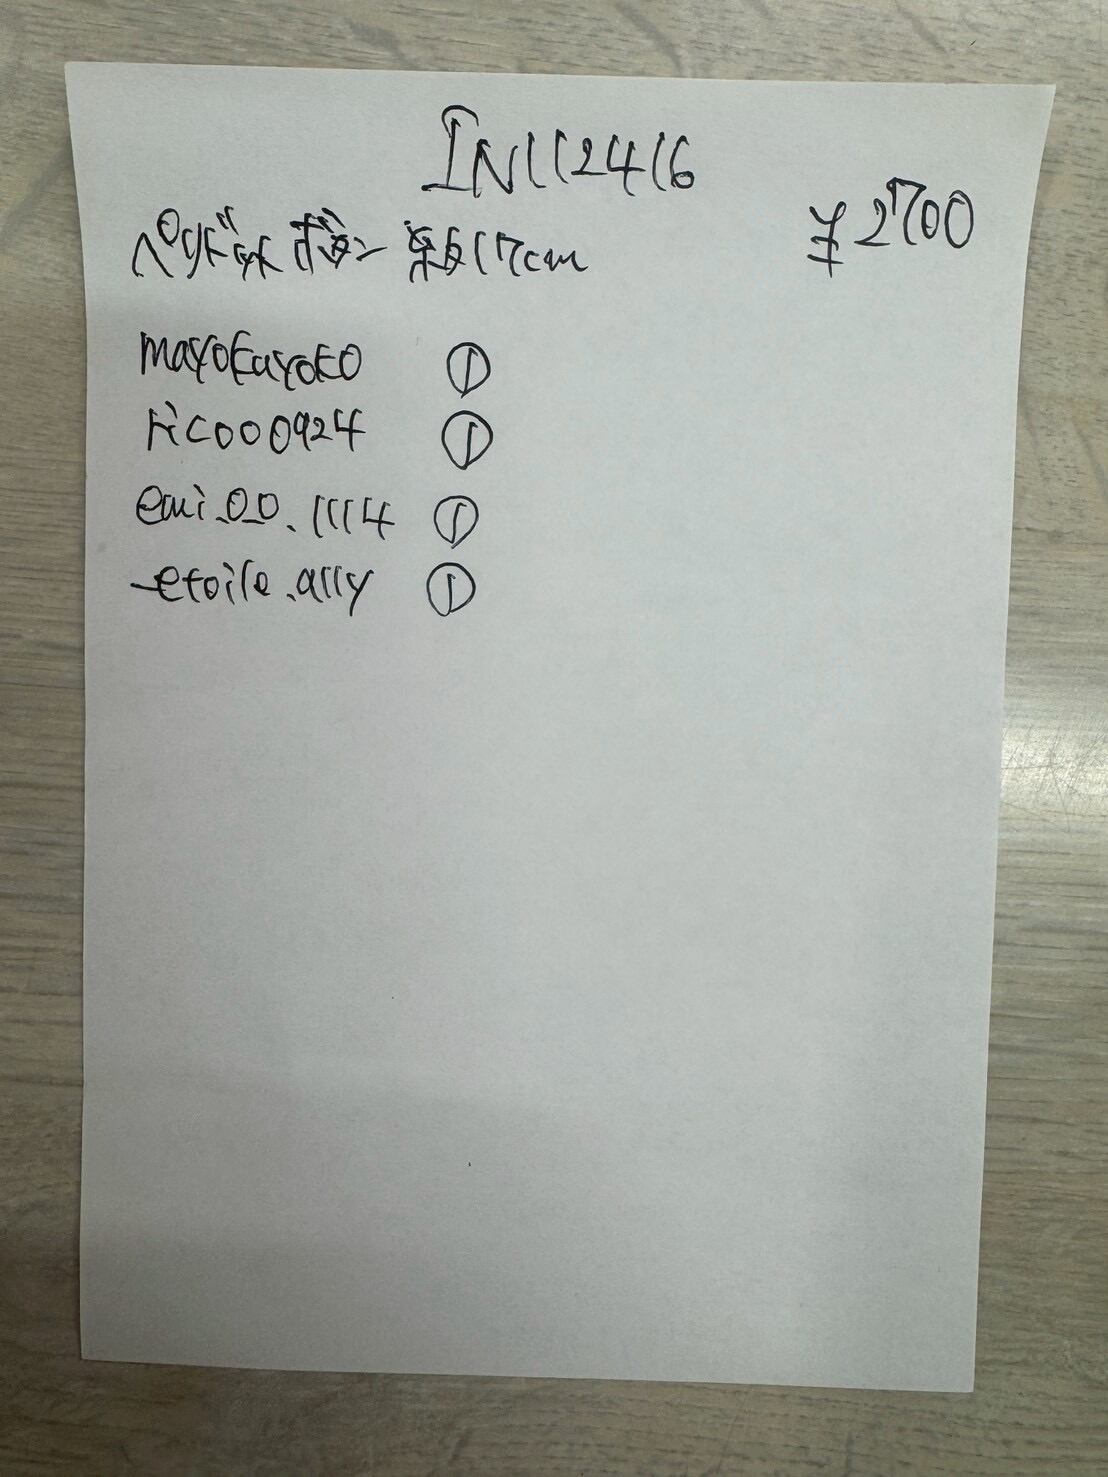 IN112416
ペリドット ボタン 約17cm ¥2700
mayokayoko ①
rico00924 ①
emi.o_o.1114 ①
etoile.ally ①